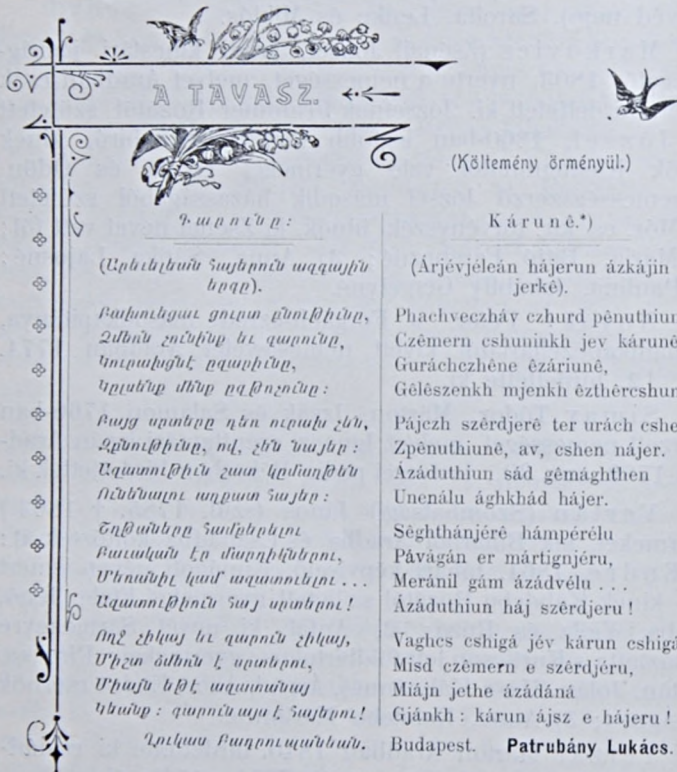 A TAVASZ.
(Költemény örményül.)
Գարունը:
(Արեւելեան հայերուն ազգային
երգը).
Փախուեցաւ ցուրտ բնութիւնը,
Չմեռն չունինք եւ գարունը,
Կուրախցնէ ըզարիւնը,
Կըլսենք մենք ըզթռչունը:
Բայց սրտերը դեռ ուրախ չեն,
Զբնութիւնը, ով, չեն նայեր:
Ազատութիւն շատ կըմաղթեն
Ունենալու աղքատ հայեր:
Շղթաները համբերելու
Բաւական էր մարդիկներու,
Մեռանիլ կամ ազատուելու ...
Ազատութիւն հայ սրտերու!
Ողջ չիկայ եւ գարուն չիկայ,
Միշտ ձմեռն է սրտերու,
Միայն եթէ ազատանայ
Կեանք: գարուն այս է հայերու!
Ղուկաս Բադրուպանեան.
Kárunê.*)
(Árjévjéleán hájerun ázkájin
jerkê).
Phachveczháv czhurd pênuthiun
Czêmern cshuninkh jev kárunê
Guráchczhêne êzáriunê,
Gêlêszenkh mjenkh êzthêrcshun
Pájczh szêrdjerê ter urách cshe
Zpênuthiunê, av, cshen nájer.
Ázáduthiun sád gêmághthen
Unenálu ághkhád hájer.
Sêghthánjérê hámpérélu
Pávágán er mártignjéru,
Meránil gám ázádvélu ...
Ázáduthiun háj szêrdjeru!
Vaghcs cshigá jév kárun cshigá
Misd czêmern e szêrdjéru,
Miájn jethe ázádáná
Gjánkh: kárun ájsz e hájeru!
Budapest. Patrubány Lukács.